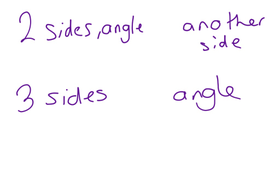 2 sides, angle another
side
3 sides angle